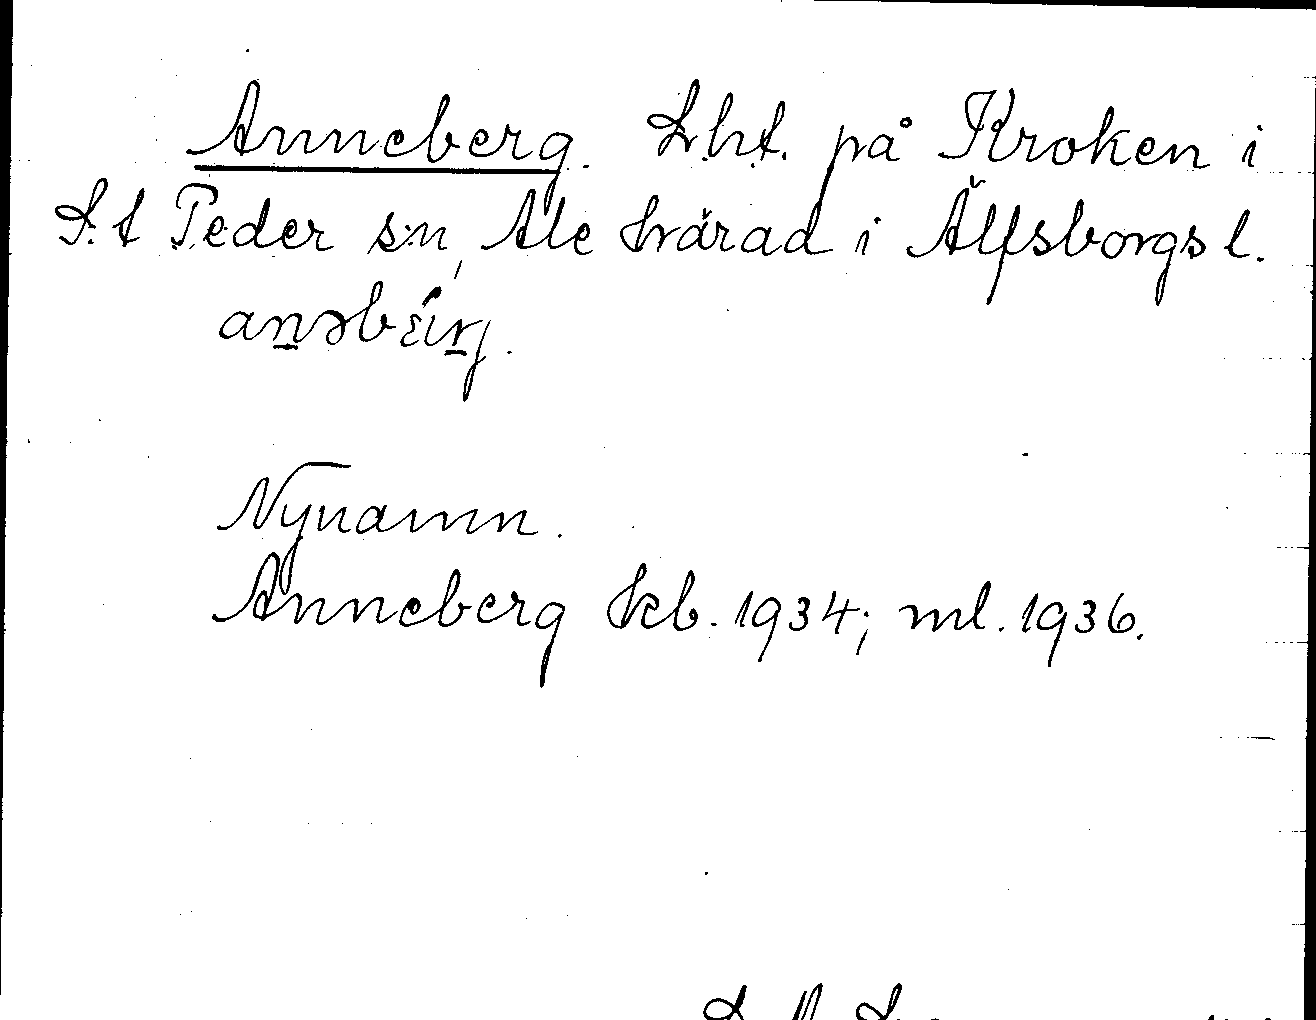 Anneberg. Lht. på Kroken i
S:t Peder sn, Ale härad i Älfsborgs l.
Nynamn.
Anneberg kb. 1934; ml. 1936.